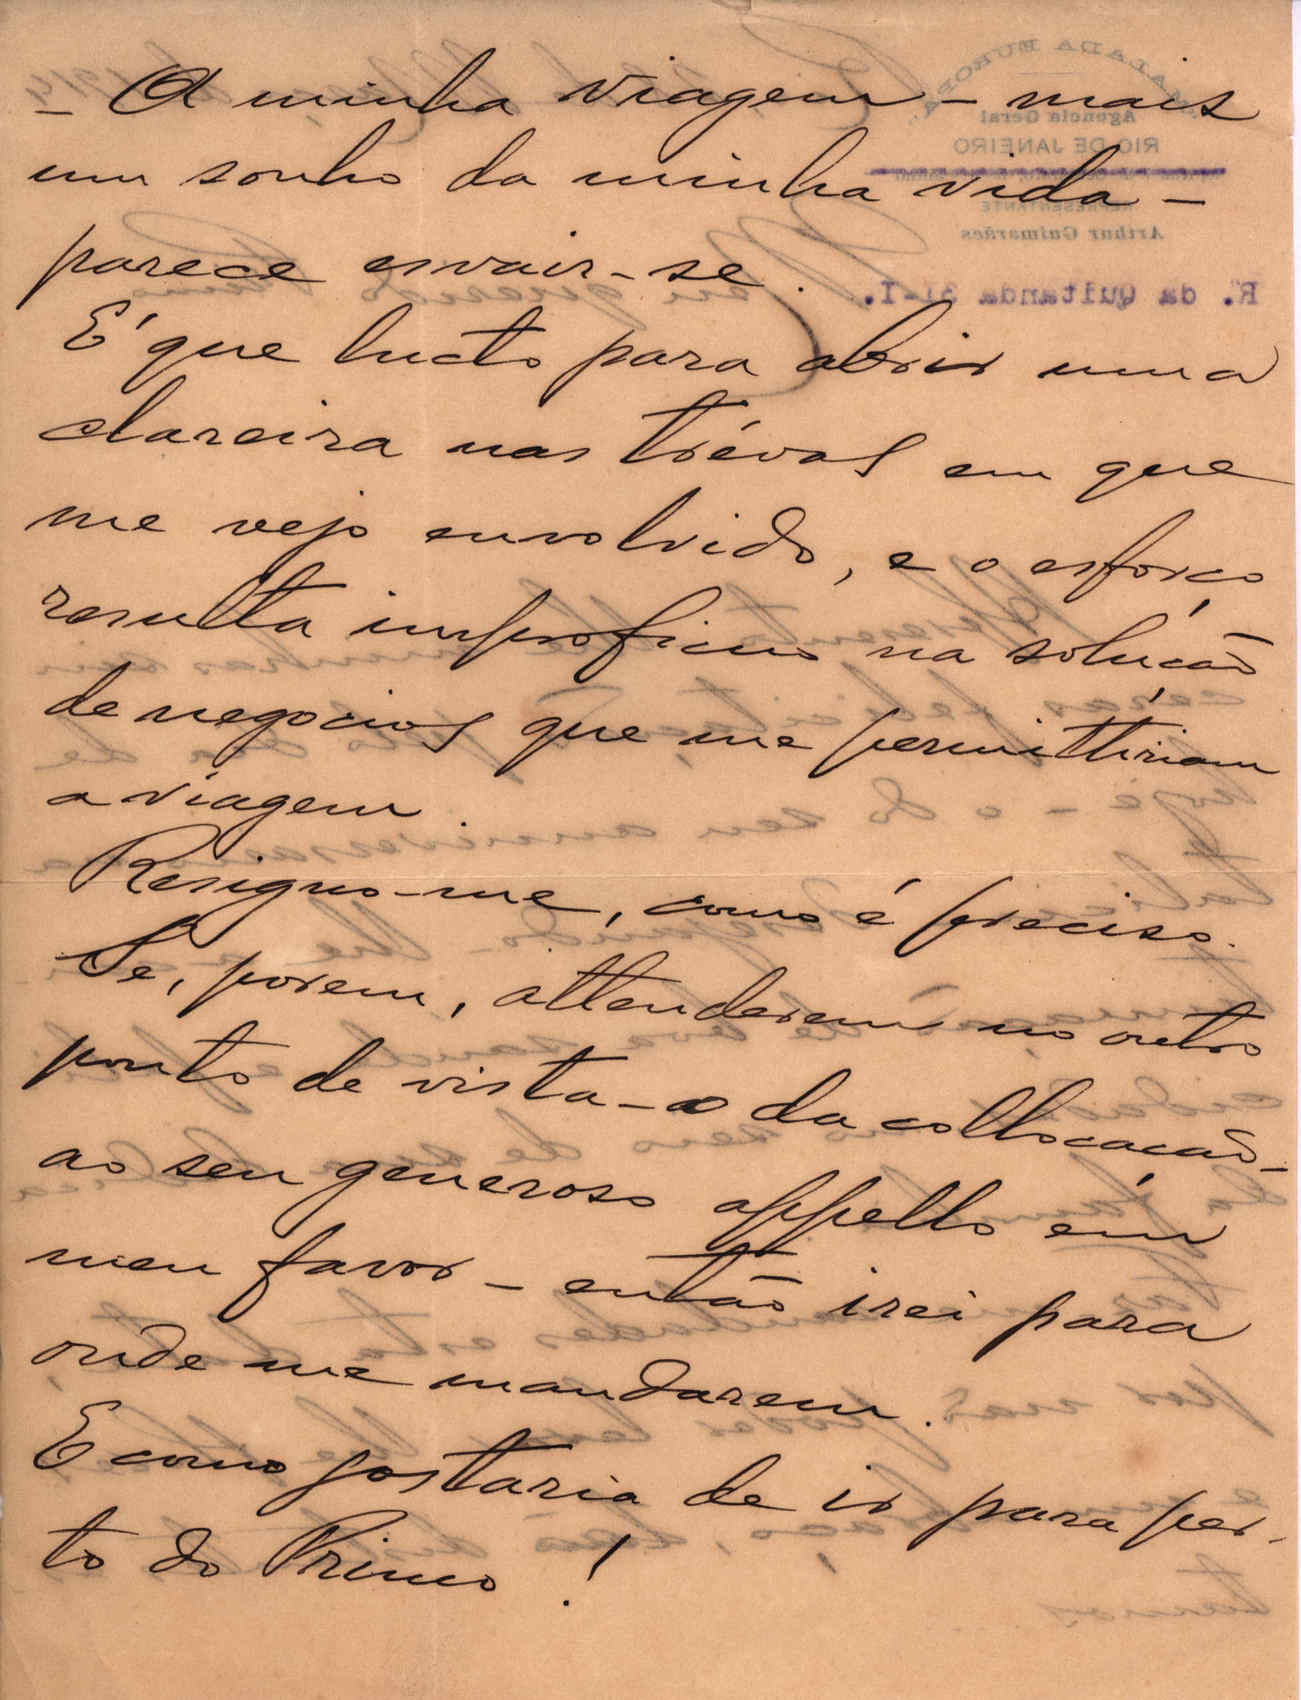 - A minha viagem - mais
um sonho da minha vida -
parece esvair-se.
E' que lucto para abrir uma
clareira nas trévas em que
me vejo envolvido, e o esforço
resulta improficuo na solução
de negocios que me permittiriam
a viagem
Resigno-me, como é preciso.
Se, porem, attenderem no outro
ponto de vista - o da collocação -
ao seu generoso appello em
meu favor - então irei para
onde me mandarem.
E como gostaria de ir para per-
to do Primo!
Agencia Geral
RIO DE JANEIRO
REPRESENTANTE
Arthur Guimarães
R. da Quitanda 31-I.